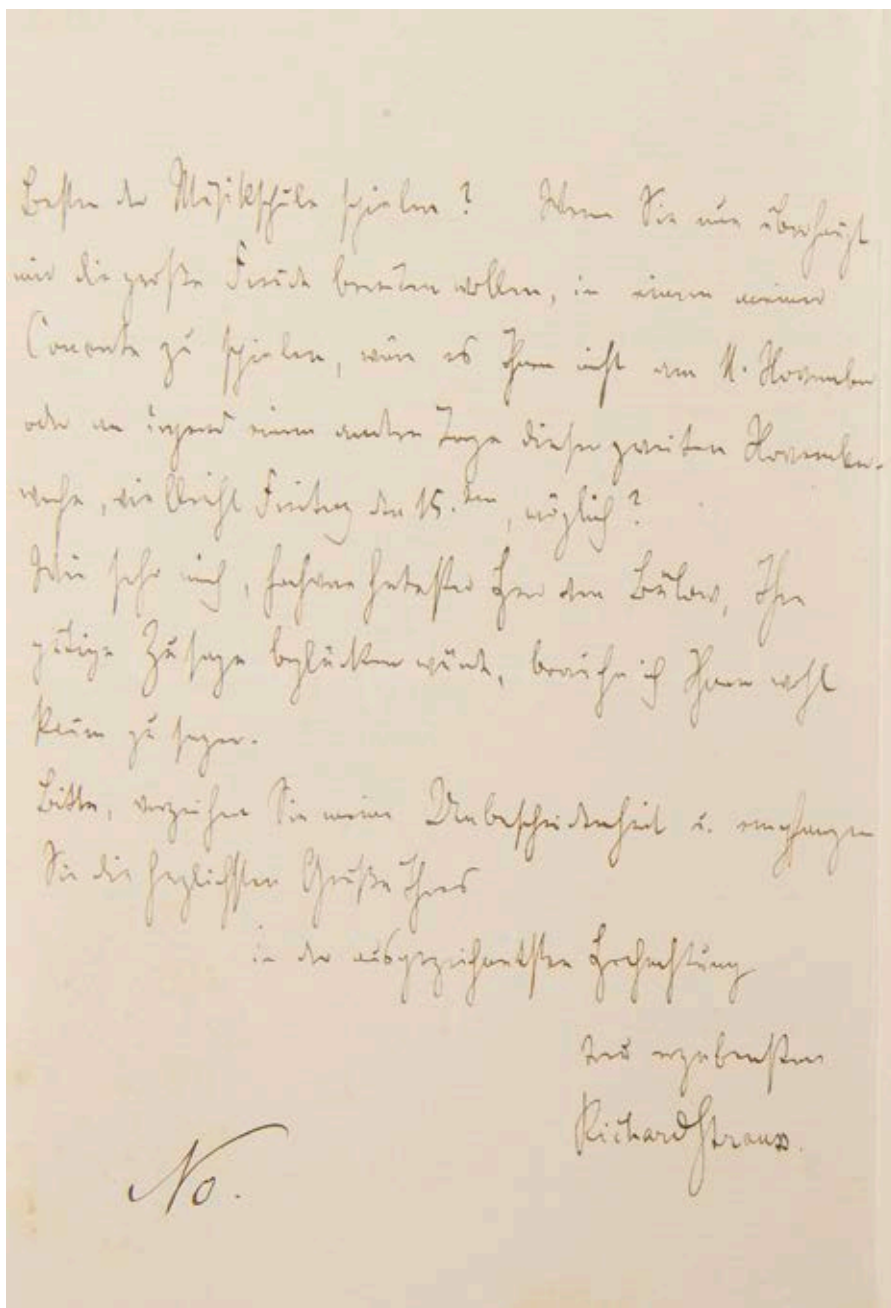 Besten der Musikschule spielen? Wenn Sie nun überhaupt
mir die große Freude bereiten wollen, in einem meiner
Concerte zu spielen, wäre es Ihnen nicht am 11. November
oder an irgend einem andern Tage dieser zweiten November-
woche, vielleicht Freitag den 15.ten, möglich?
Wie sehr mich, hochverehrtester Herr von Bülow, Ihre
gütige Zusage beglücken würde, brauche ich Ihnen wohl
kaum zu sagen.
Bitte, verzeihen Sie meine Unbescheidenheit u. empfangen
Sie die herzlichsten Grüße Ihres
in der ausgezeichnetsten Hochachtung
treu ergebensten
Richard Strauss.
No.